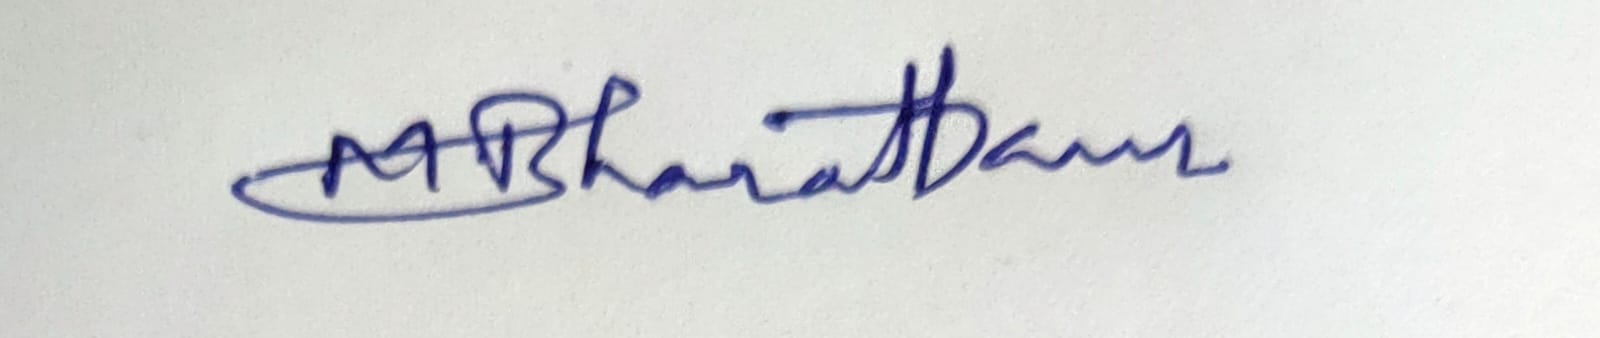 M Bharathan